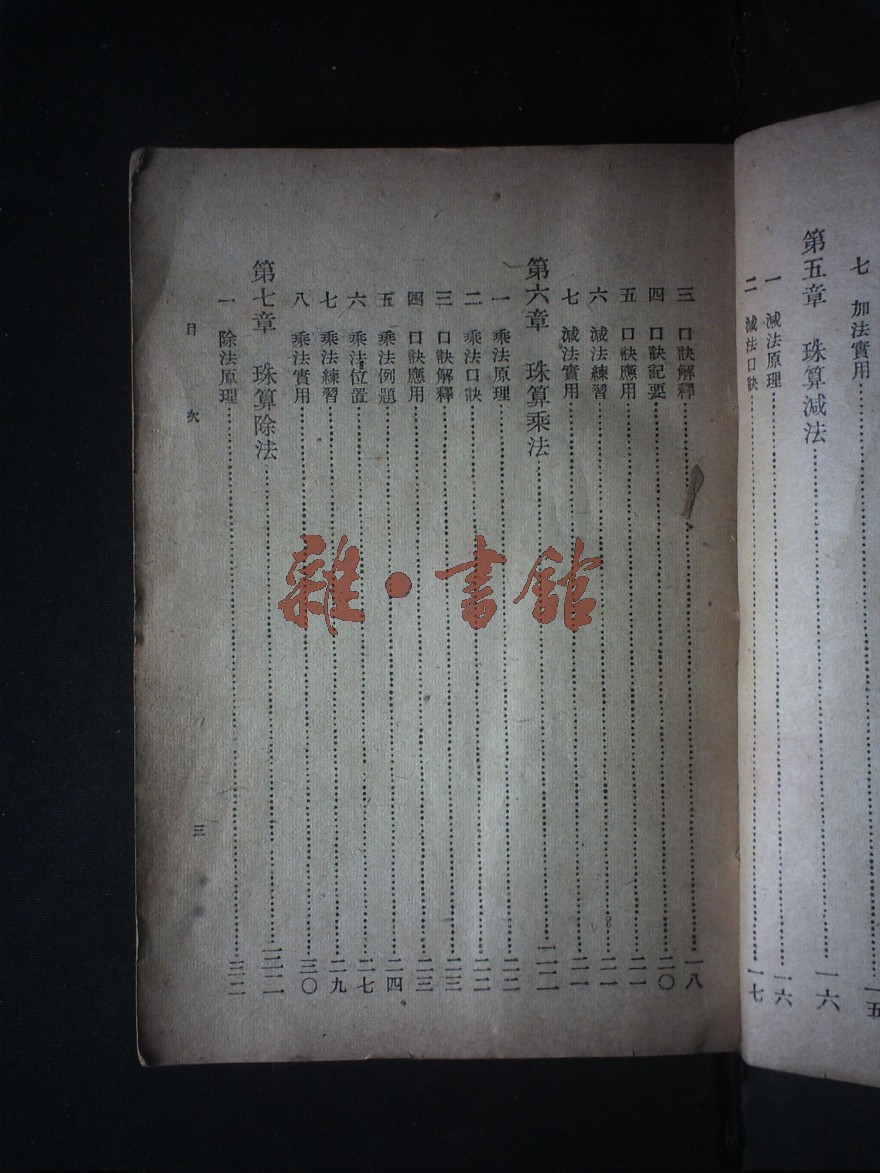 七　加法實用……一五
第五章　珠算減法……一六
一　減法原理……一六
二　減法口訣……一七
三　口訣解釋……一八
四　口訣記要……二〇
五　口訣應用……二一
六　減法練習……二一
七　減法實用……二一
第六章　珠算乘法……二二
一　乘法原理……二二
二　乘法口訣……二二
三　口訣解釋……二三
四　口訣應用……二三
五　乘法例題……二四
六　乘法位置……二七
七　乘法練習……二九
八　乘法實用……三〇
第七章　珠算除法……三二
一　除法原理……三二
目次
三
雜·書館